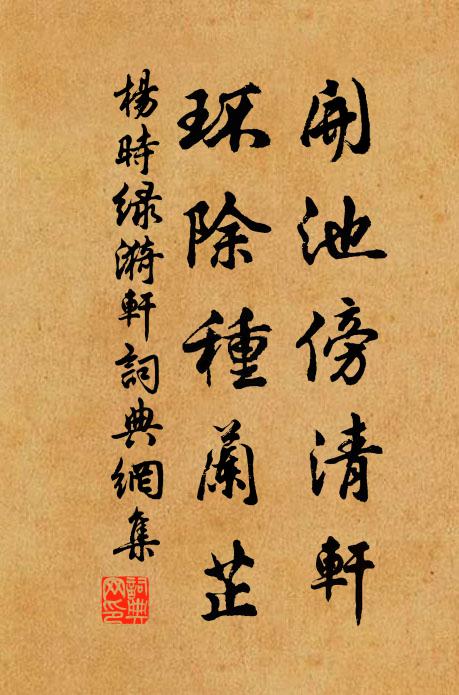 開池傍清軒
环除種蘭芷
楊時綠漪軒詞典網集
詞典網印